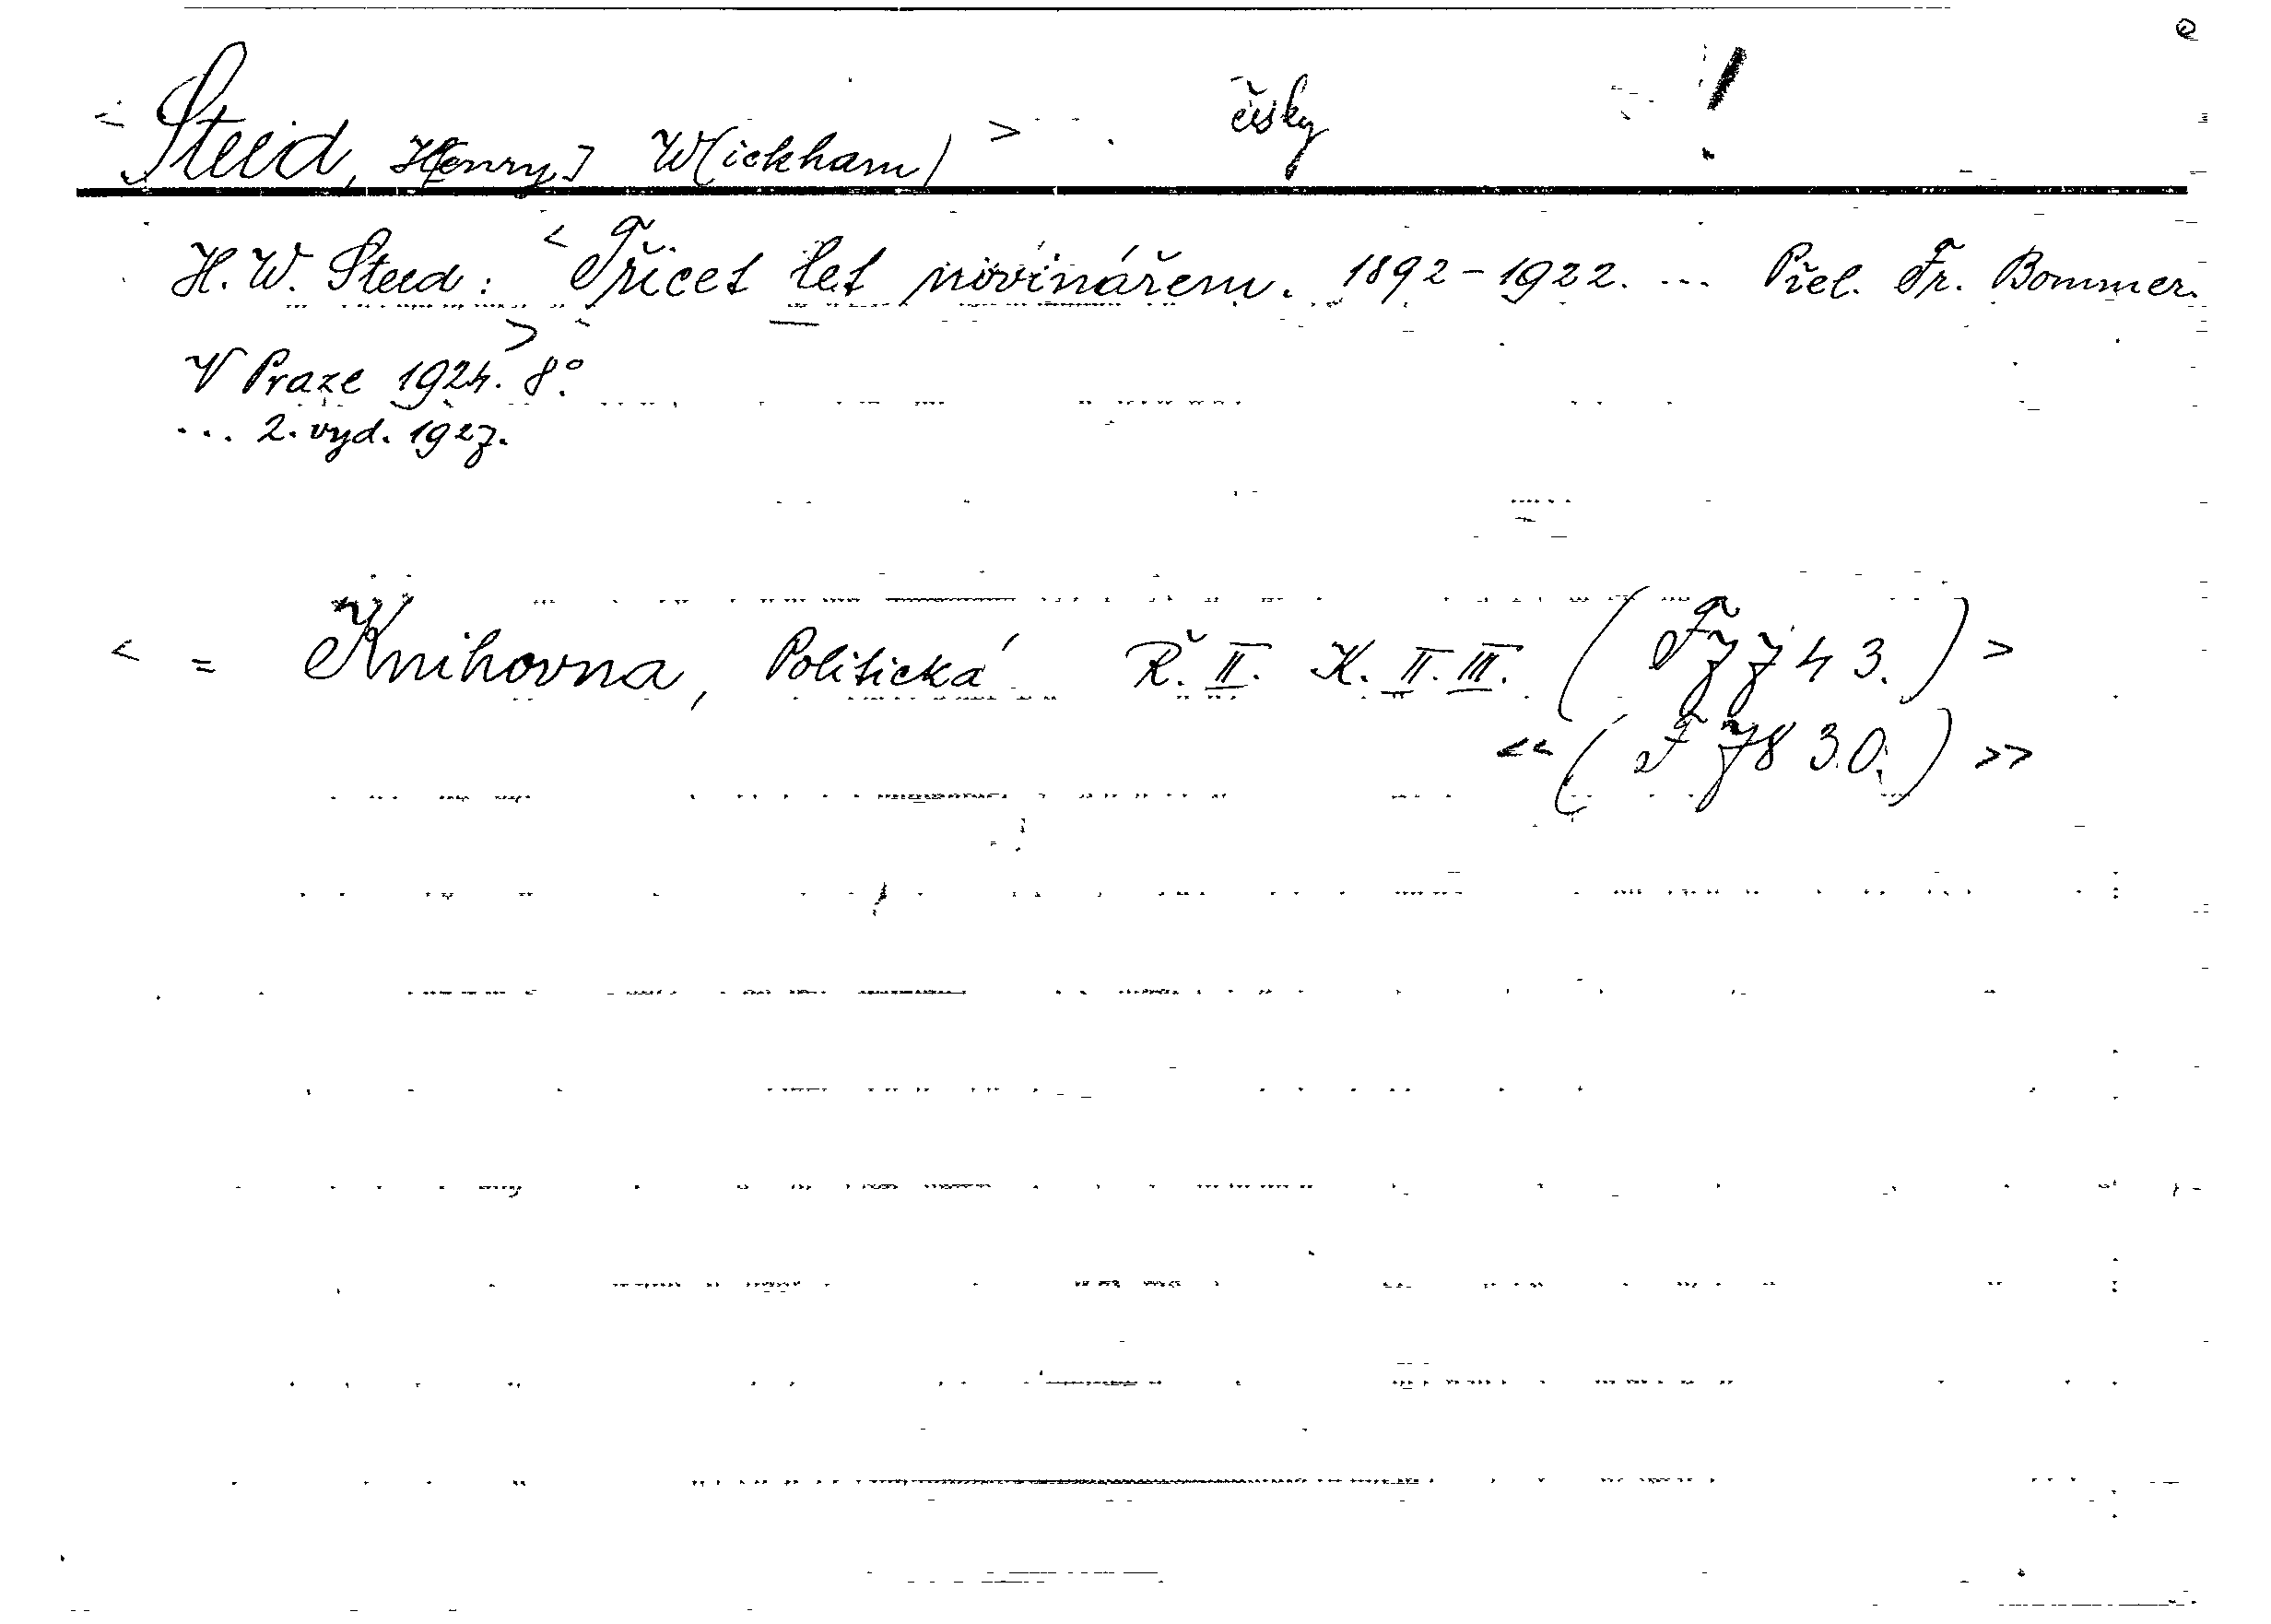 < Steed, H[enry] W(ickham) > česky !
H. W. Steed: < Třicet let novinářem. 1892-1922. ... Přel. Fr. Bommer.
V Praze 1924. > 8°.
... 2. vyd. 1927.
< = Knihovna, Politická Ř. II. K. II. III. (F 7743.) >
<< (F 7830.) >>